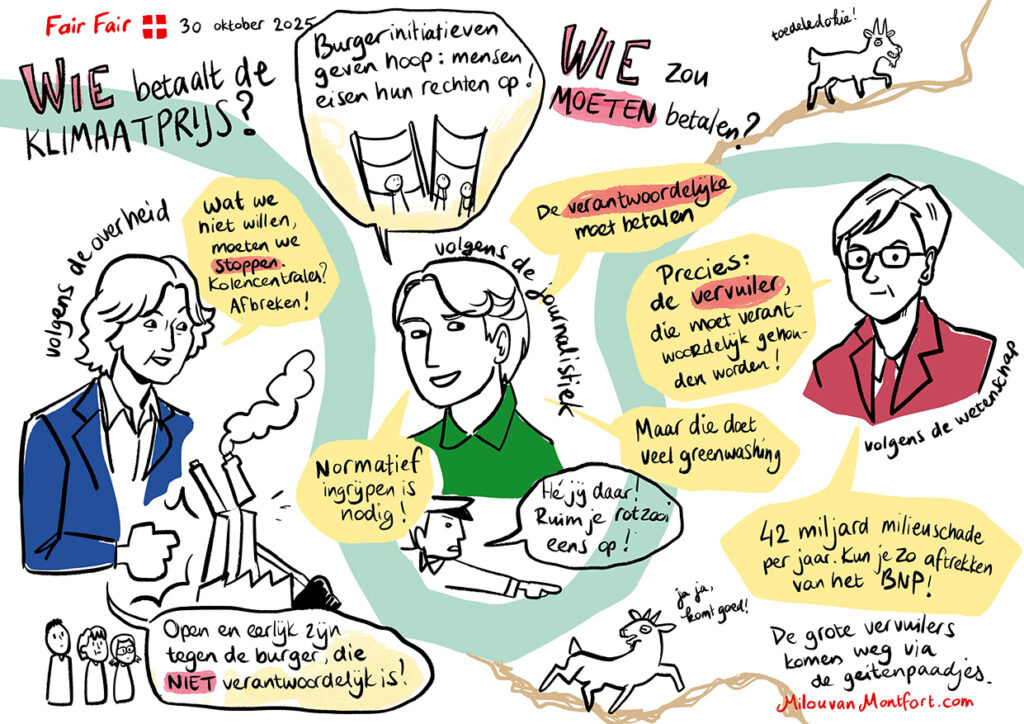 Fair Fair 30 oktober 2025
WIE betaalt de
KLIMAATPRIJS?
Burgerinitiatieven
geven hoop: mensen
eisen hun rechten op!
WIE zou
MOETEN betalen?
toedeledokie!
volgens de overheid
Wat we
niet willen,
moeten we
stoppen.
Kolencentrales?
Afbreken!
Open en eerlijk zijn
tegen de burger, die
NIET verantwoordelijk is!
volgens de journalistiek
De verantwoordelijke
moet betalen
Normatief
ingrijpen is
nodig!
Maar die doet
veel greenwashing
Hé jij daar!
Ruim je rotzooi
eens op!
Precies:
de vervuiler,
die moet verant-
woordelijk gehou-
den worden!
volgens de wetenschap
42 miljard milieuschade
per jaar. Kun je zo aftrekken
van het BNP!
ja ja,
komt goed!
De grote vervuilers
komen weg via
de geitenpaadjes.
MilouvanMontfort.com